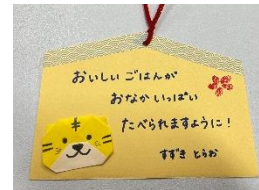 おいしいごはんが
おなかいっぱい
たべられますように！
すずき とらお